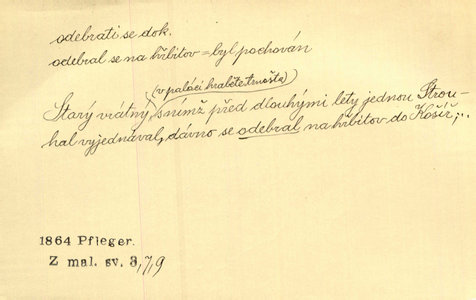 odebrati se dok.
odebral se na hřbitov = byl pochován
(v paláci hraběte trnošta)
Starý vrátný, s nímž před dlouhými léty jednou Strou-
hal vyjednával, dávno se odebral na hřbitov do Košíř;..
1864 Pfleger.
Z mal. sv. 3,7,9